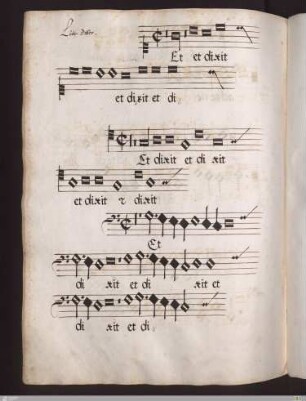 Et et dixit
et dixit et di
Et dixit et di xit
et dixit ⁊ dixit
Et
di xit et di xit et
di xit et di